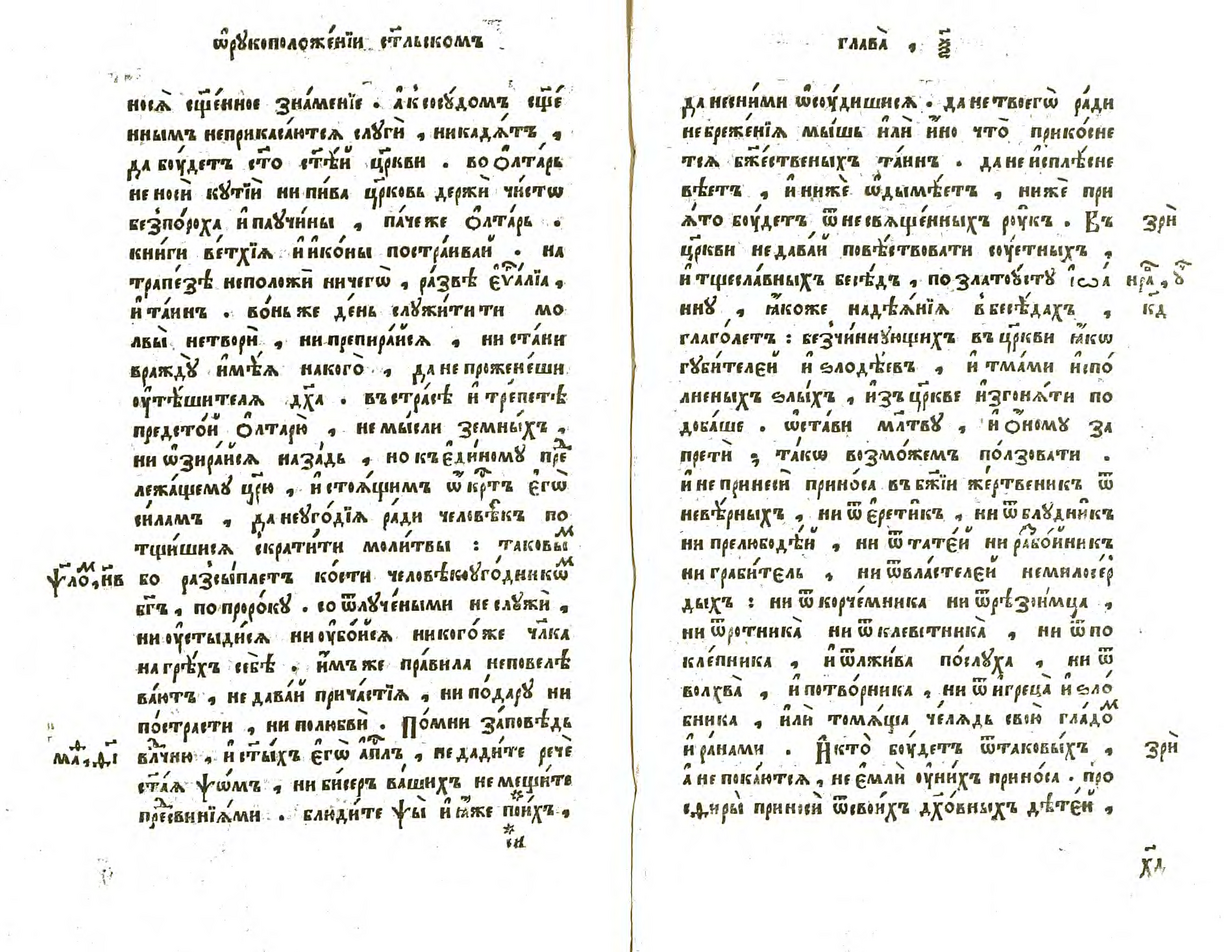 ѡ҆рꙋкоположе́нїи ст҃льскомъ
нося̀ сщ҃е́нное зна́менїе . а҆ к̾ сосꙋ́домъ сщ҃е́
ннымъ неприкаса́ются слꙋгѝ , ни кадя́тъ ,
да бꙋ́детъ ст҃о ст҃ѣ́й цр҃кви . во ѻ҆лта́рь
не носѝ кꙋтїѝ ни пи́ва цр҃ковь держѝ чи́стѡ
без̾по́роха и҆ паꙋчи́ны , па́че же ѻ҆лта́рь .
кни́ги ве́тхїя и҆ и҆ко́ны постра́ивай . на
трапе́зѣ не положѝ ничего̀ , ра́звѣ є҆ѵⷢ҇а́лїа ,
и҆ та́инъ . во́нь же де́нь слꙋжи́ти ти мо
лвы̀ не творѝ , ни препира́йся , ни ста́ни
враждꙋ̀ и҆мѣ́я на кого̀ , да не проженеши
ѹ҆тѣ́шителя дх҃а . въ стра́сѣ и҆ тре́петѣ
предсто́й ѻ҆лтарю̀ , не мы́сли земны́хъ ,
ни ѡ҆зира́йся наза́дь , но къ є҆ди́номꙋ преⷣ
лежа́щемꙋ цр҃ю , и҆ стоя́щимъ ѡ҆крⷭ҇тъ є҆гѡ̀
си́ламъ , да не ꙋго́дїя ра́ди человѣ́къ по
тщи́шися скрати́ти моли́твы : таковыⷨ
ѱаⷧ҇о҃ , н҃в
бо разсы́плетъ ко́сти человѣкоꙋго́дникѡⷨ
бг҃ъ , по проро́кꙋ . со ѿлꙋче́ными не слꙋжѝ ,
ни ѹ҆стыди́ся ни ѹ҆бо́йся никого́же чл҃ка
на грѣ́хъ себѣ̀ . и҆́мъ же пра́вила не повелѣ
ва́ютъ , не дава́й прича́стїя , ни по́дарꙋ ни
по́страсти , ни по любвѝ . По́мни за́повѣдь
маⷴ҇ , ѳ҃і
влⷣчню , и҆ ст҃ы́хъ є҆гѡ̀ а҆пⷭ҇лъ , не дади́те речѐ
ст҃а́я ѱѡ́мъ , ни би́серъ ва́шихъ не мещи́те
преⷣсвинїя́ми . блюди́те ѱы̀ и҆ ꙗ҆́же пои́хъ ,
си
глава̀ , ѯ҃
да не сни́ми ѡ҆сꙋ́дишися . да не твоегѡ̀ ра́ди
небреже́нїя мы́шь и҆лѝ и҆́но что̀ прикосне
тся бж҃е́ственыхъ та́инъ . да не и҆сплѣ́сне
вѣетъ , и҆ нижѐ ѡ҆дымѣ́етъ , нижѐ при
я́то бꙋ́детъ ѿ несвяще́нныхъ рꙋ́къ . Въ
зрѝ
цр҃кви не дава́й повѣ́ствовати сꙋ́етныхъ ,
и҆ тщесла́вныхъ бесѣ́дъ , по златоꙋ́стꙋ і҆ѡа́
ннꙋ , ꙗ҆́коже на дѣѧ́нїя в̾ бесѣ́дахъ ,
к҃д
глаго́летъ : безчи́ннꙋющихъ въ цр҃кви ꙗ҆́кѡ
гꙋби́телей и҆ ѕлодѣ́евъ , и҆ тма́ми и҆спо́
лненыхъ ѕлы́хъ , и҆зъ цр҃кве и҆згоня́ти по
доба́ше . ѡ҆ста́ви мл҃твꙋ , и҆ ѻ҆́номꙋ за
претѝ ; та́кѡ возмо́жемъ по́лзовати .
и҆ не принесѝ прино́са въ бж҃їи же́ртвеникъ ѿ
невѣ́рныхъ , ни ѿ є҆рети́къ , ни ѿ блꙋдни́къ
ни прелюбодѣ́й , ни ѿ тате́й ни разбо́йникъ
ни граби́тель , ни ѿвласте́лей немилосе́р
дыхъ : ни ѿ корче́мника ни ѿрѣзои́мца ,
ни ѿро́тника ни ѿ клеветника̀ , ни ѿ по
кле́пника , и҆ ѿлжи́ва по́слꙋха , ни ѿ
волхва̀ , и҆ потво́рника , ни ѿ и҆греца̀ и҆ ѕло́
бника , и҆лѝ томя́ща че́лядь свою̀ гла́доⷨ
и҆ ра́нами . И҆ кто̀ бꙋ́детъ ѿтаковы́хъ ,
зрѝ
а҆ не пока́ются , не є҆млѝ ѹ҆ ни́хъ прино́са . про
сѳиры̀ приносѝ ѿ свои́хъ дх҃о́вныхъ дѣте́й ,
х҃д